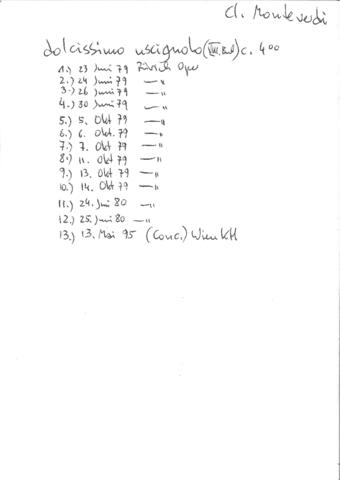 Cl. Monteverdi
dolcissimo uscignolo (VIII. Bd) c. 400
1.) 23 Juni 79 Zürich Oper
2.) 24 Juni 79 —"
3.) 26 Juni 79 —"
4.) 30 Juni 79 —"
5.) 5. Okt 79 —"
6.) 6. Okt. 79 —"
7.) 7. Okt 79 —"
8.) 11. Okt 79 —"
9.) 13. Okt 79 —"
10.) 14. Okt 79 —"
11.) 24. Juni 80 —"
12.) 25. Juni 80 —"
13.) 13. Mai 95 (Conc.) Wien KH